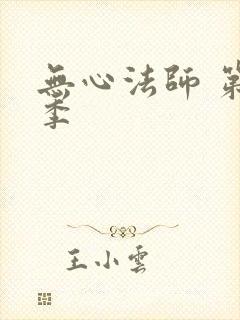 無心法師 第
季
王小雲